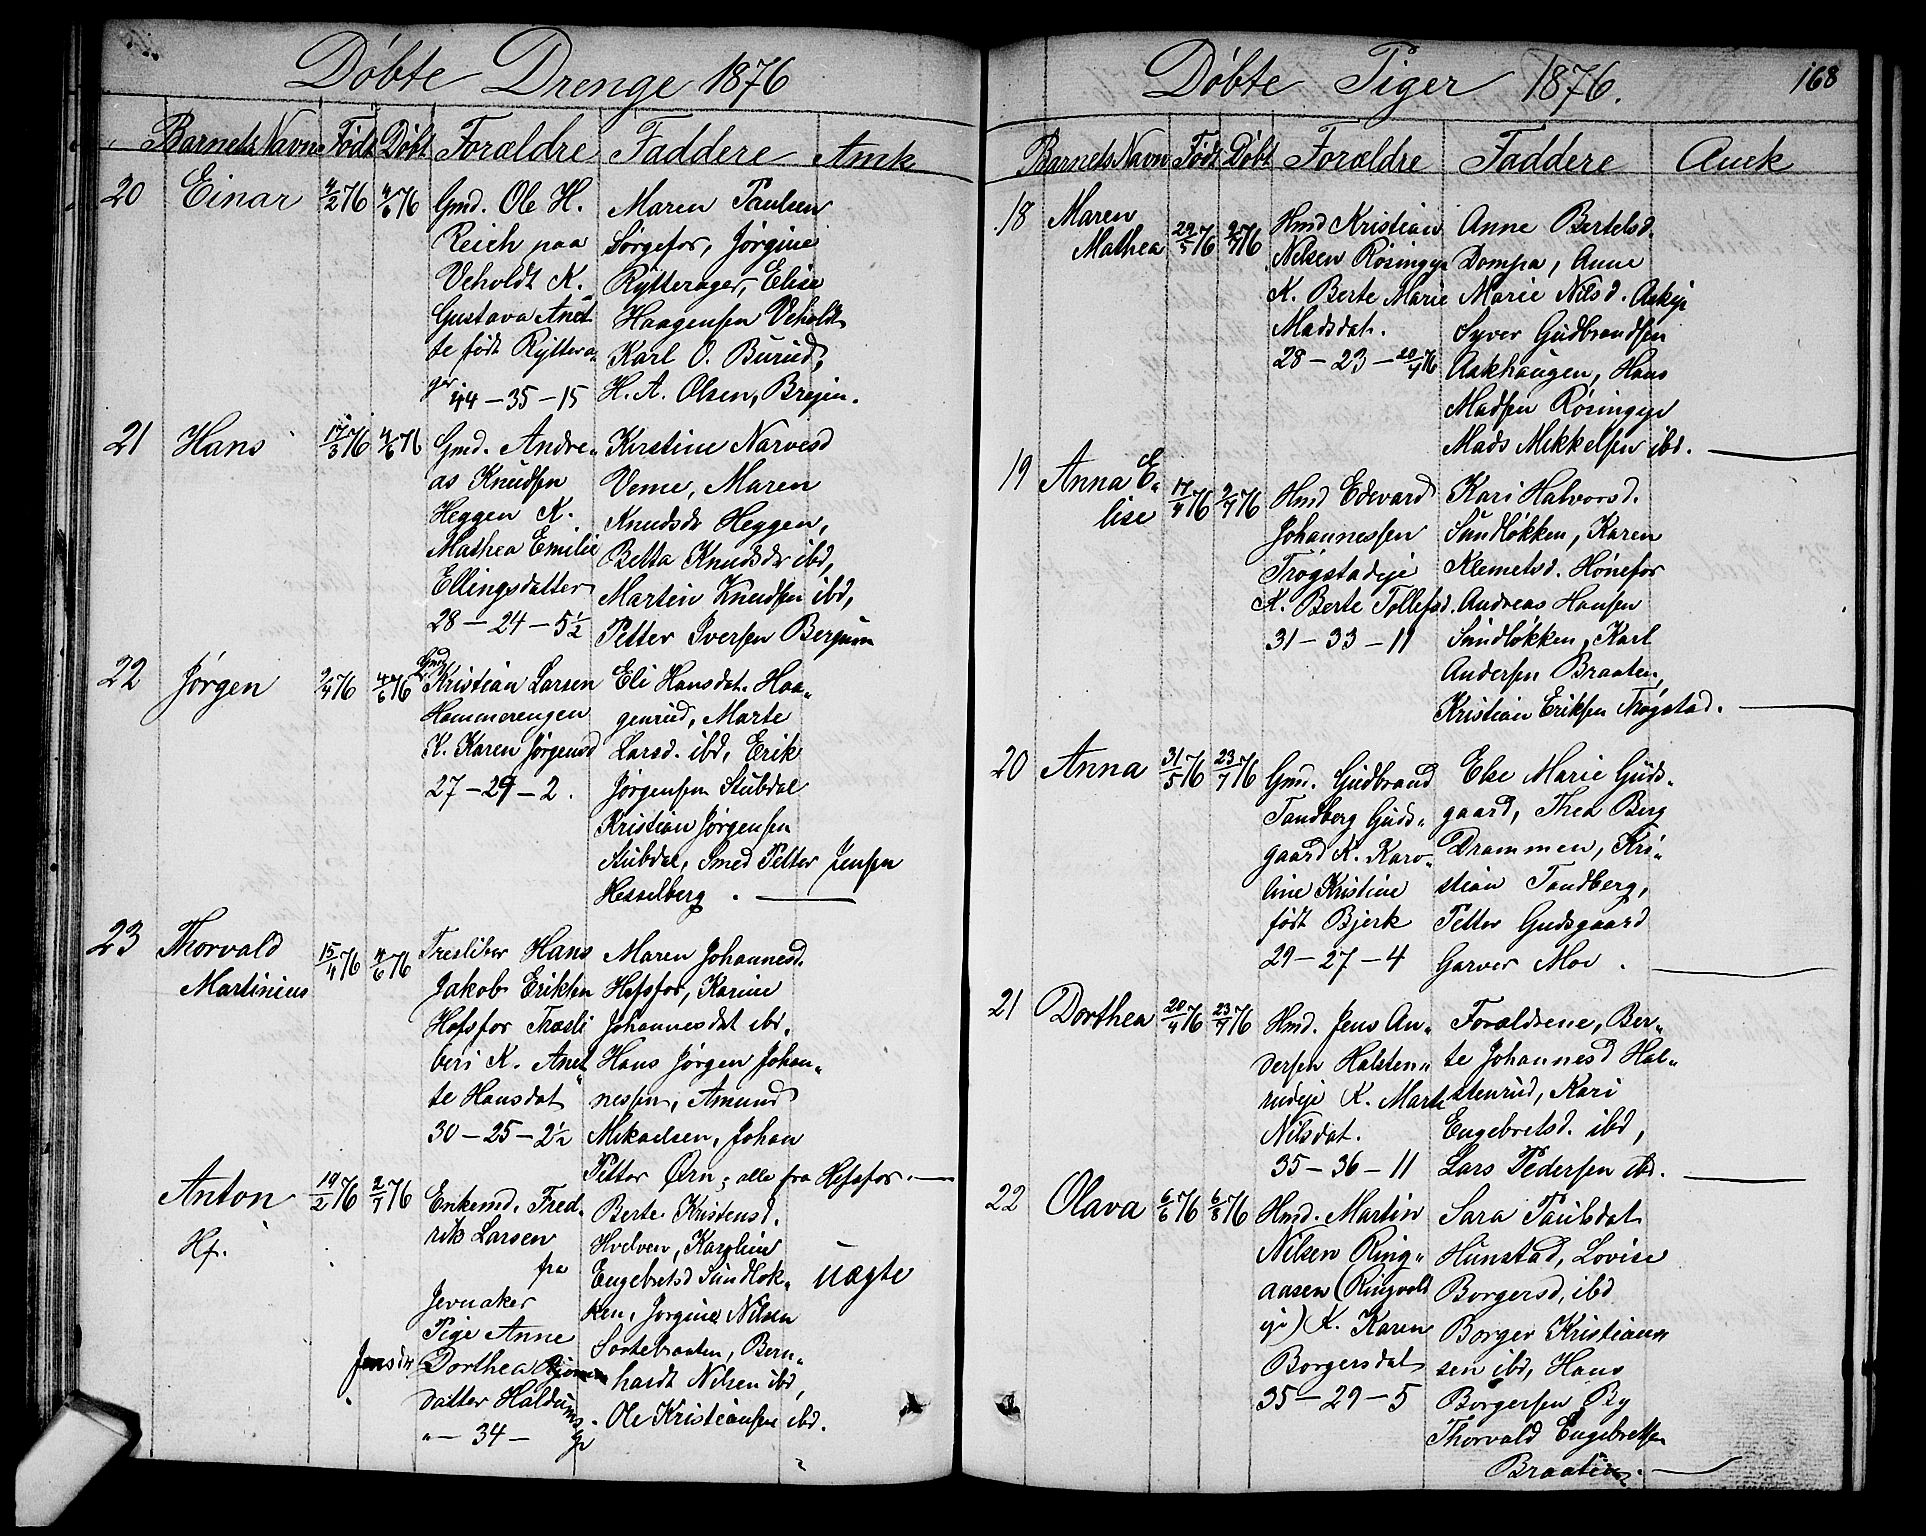 Döbte Drenge 1876
Barnets Navn Født Döbt Forældre Faddere Amk
20 Einar 4/2 76 4/6 76
Gmd. Ole H.
Reich paa
Veholdt K.
Gustava Anet
te født Ryttera„
ger
44 – 35 – 15
Maren Paulsen
Sørgefos, Jørgine
Rytterager, Elise
Haagensen Veholdt
Karl O. Burud,
H. A. Olsen, Breien.
21 Hans 17/3 76 4/6 76
Gmd. Andre„
as Knudsen
Heggen K.
Mathea Emilie
Ellingsdatter
28 – 24 – 5½
Kirstine Narvesd
Veme, Maren
Knudsdr Heggen,
Betta Knudsdr ibd,
Martin Knudsen ibd,
Petter Iversen Bergsun
22 Jørgen 2/4 76 4/6 76
Gmd
Kristian Larsen
Hammerengen
K. Karen Jørgensd
27 – 29 – 2.
Eli Hansdat. Haa„
genrud, Marte
Larsd. ibd, Erik
Jørgensen Stubdal
Kristian Jørgensen
Stubdal, Smed Petter Jensen
Hesselberg.
23 Thorvald
Martinius 15/4 76 4/6 76
Træsliber Hans
Jakob Eriksen
Hofsfos Træsli
beri K. Anet„
te Hansdat
30 – 25 – 2½
Maren Johannesd.
Hofsfos, Karine
Johannesdat ibd.
Hans Jørgen Johan„
nessen, Amund
Mikaelsen, Johan
Petter Ørn; alle fra Hofsfos.
Anton 19/2 76 2/7 76
Hf.
Enkemd. Fred„
rik Larsen
fra
Jevnaker
Pige Anne
Jensdr Dorthea
datter Haldums
„ – 34 –
Berte Kristensd.
Hvelven, Karoline
Engebretsd Sundløk„
ken, Jørgine Nilsen
Sortebraaten, Bern„
hardt Nilsen ibd,
Ole Kristiansen ibd.
uægte
Döbte Piger 1876. 168
Barnets Navn Født Döbt Forældre Faddere Anek
18 Maren
Mathea 29/5 76 2/7 76
Hmd Kristian
Nilsen Røsingeje
K. Berte Marie
Madsdat.
28 – 23 – 20/4 76
Anne Bertelsd.
Dompa, Anne
Marie Nilsd. Askeje
Syver Gudbrandsen
Aakhaugen, Hans
Madsen Røsingeje
Mads Mikkelsen ibd.
19 Anna E„
lise 17/4 76 2/7 76
Hmd Edvard
Johannessen
Trøgstadeje
K. Berte Tollefsd.
31 – 33 – 11
Kari Halvorsd.
Sundløkken, Karen
Klemetsd. Hønefos
Andreas Hansen
Sundløkken, Karl
Andersen Braaten,
Kristian Eriksen Trøgstad.
20 Anna 31/5 76 23/7 76
Gmd. Gudbrand
Tandberg Guds„
gaard K. Karo„
line Kristine
født Bjerk
29 – 27 – 4
Else Marie Guds„
gaard, Thea Berg
Drammen, Kri„
stian Tandberg,
Petter Gudsgaard
Garver Moe.
21 Dorthea 20/4 76 23/7 76
Hmd. Jens An„
dersen Halsten„
rudeje K. Marte
Nilsdat.
35 – 36 – 11
Forældrene, Ber„
te Johannesd Hal„
stenrud, Kari
Engebretsd. ibd,
Lars Pedersen ibd.
22 Olava 6/6 76 6/8 76
Hmd. Martin
Nilsen Ring„
aasen (Ringvold
eje) K. Karen
Borgersdat
35 – 29 – 5
Sara Paulsdat
Hunstad, Lovise
Borgersd, ibd
Borger Kristian
sen ibd, Hans
Borgersen By
Thorvald Engebretsen
Braaten.